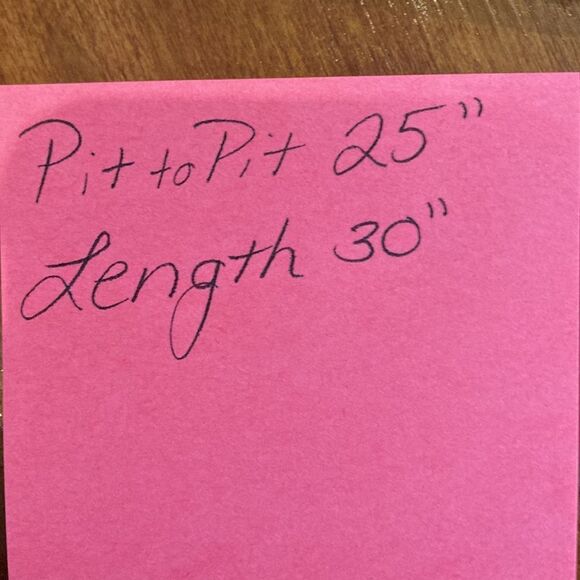 Pit to Pit 25"
Length 30"